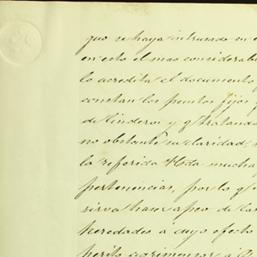 que se haya intrusado en e
en esto el mas considerab
lo acredita el documento
constan los puntos fijos y
de linderos y q tratando
no obstante su claridad,
la referida Hda mucha
pertenencias, por lo q
sirva hacer apeo de las
heredades á cuyo efecto
perito agrimensor á D